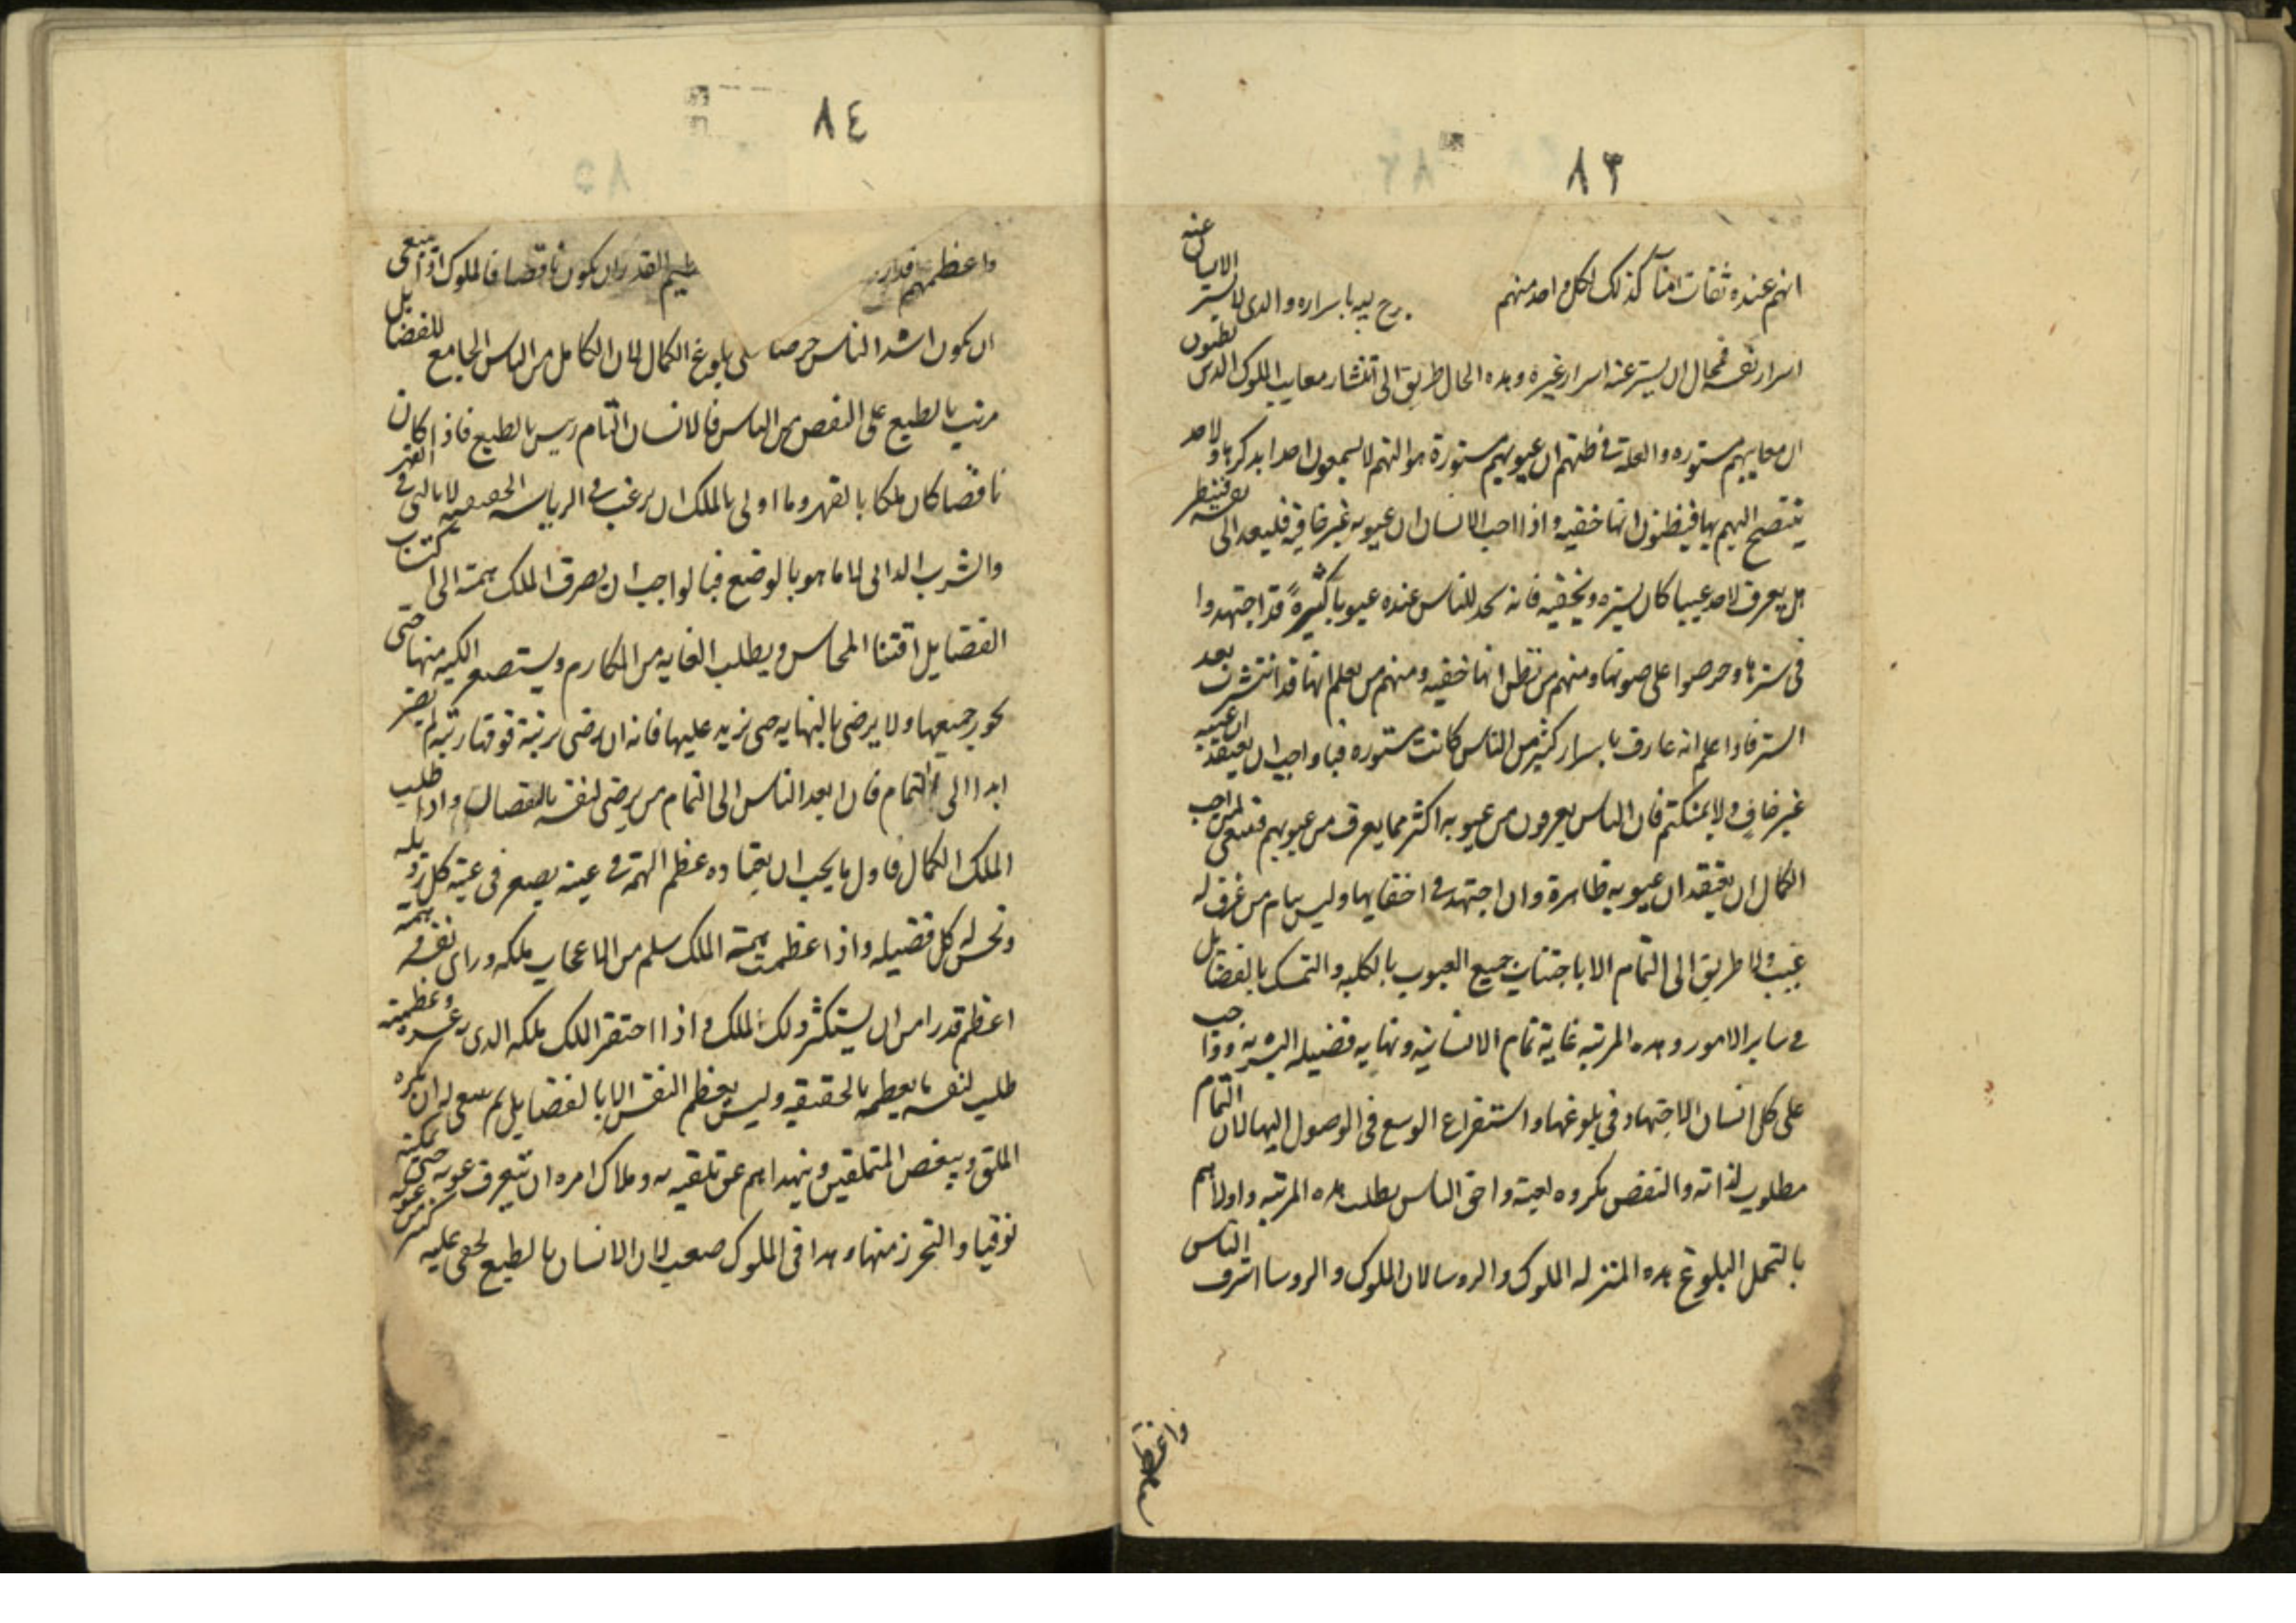 ٨٣
انهم عنده ثقات امنآ كذلك لكل واحد منهم يه باسراره والدى لا يستر الانسان عنه
اسرار نفسه فمحال ان يستر عنه اسرار غيره وهده الحال طريق الى انتشار معايب الملوك الدين يظنون
ان معايبهم مستوره والعلة فى ظنهم ان عيوبهم مستورة هو انهم لا يسمعون احدا يذكرها ولا احد
يتنصح اليهم بها فيظنون انها خفيه واذا احب الانسان ان عيوبه غير خافيه فليعد الى نفسه فينظر
هل يعرف لاحد عيبا كان يستره ويخفيه فانه يجد للناس عنده عيوبا كثيرةً قد اجتهدوا
فى سترها وحرصوا على صونها ومنهم من يظن انها خفيه ومنهم من يعلم انها قد انتشرت بعد
الستر فاذا علم انه عارف باسرار كثير من الناس كانت مستوره فبا واجب ان يعتقد ان عيبه
غير خافٍ ولا بمنكتم فان الناس يعرفون من عيوبه اكثر مما يعرف من عيوبهم فينبغى لمن احب
الكمال ان يعتقد ان عيوبه ظاهرة وان اجتهد فى اخفايها وليس بتام من عرف له
عيب ولا طريق الى التمام الا باجتناب جميع العيوب بالكليه والتمسك بالفضايل
فى ساير الامور وهده المرتبه غاية تمام الانسانية ونهايه فضيله البشريه وواجب
على كل انسان الاجتهاد فى بلوغها واستفراغ الوسع فى الوصول اليها لان التمام
مطلوب لذاته والنقص مكروه لعينه واحق الناس بطلب هده المرتبه واولاهم
بالتحمل البلوغ هده المنزله الملوك والروسا لان الملوك والروسا اشرف الناس
٨٤
واعظمهم قدار يم القدر ان يكون ناقصا فالملوك اذًا ينبغى
ان يكون اشد الناس حرصا على بلوغ الكمال لان الكامل من الناس الجامع للفضايل
مرتب بالطبع على النقص من الناس فالانسان التام ريس بالطبع فاذا كان
ناقصا كان ملكا بالقهر وما اولى بالملك ان يرغب فى الرياسه الحقيقيه لا بالتى فى القهر
والشرب الداتى لا ما هو بالوضع فبالواجب ان يصرف الملك همته الى اكتساب
الفضايل اقتنا المحاسن ويطلب الغايه من المكارم ويستصغر الكبير منها حتى
يحوز جميعها ولا يرضى بالنهايه حتى يزيد عليها فانه ان رضى برتبة فوقها رتبه لم يصر
ابدا الى التمام فان ابعد الناس الى التمام من يرضى لنفسه بالنقصان واذا طلب
الملك الكمال فاول ما يجب ان يعتاده عظم الهمة فى عينه يصغر فى عينه كل رذيله
وتحسن له كل فضيله واذا عظمت همة الملك سلم من الاعجاب بملكه وراى نفسه وهمته
اعظم قدرا من ان يستكثر ذلك الملك واذا احتقر الملك ملكه الدى به عزه وعظمته
طلب لنفسه ما يعظمه بالحقيقيه وليس يعظم النفس الا بالفضايل ثم ينبغى له ان يكره
الملق ويبغض المتملقين وينهداهم عن تلقيه به وملاك امره ان يتعرف عيوبه حتى يمكنه
توقيها والتحرز منها وهدا فى الملوك صعب لان الانسان بالطبع يخفى عليه كثير من عيوبه